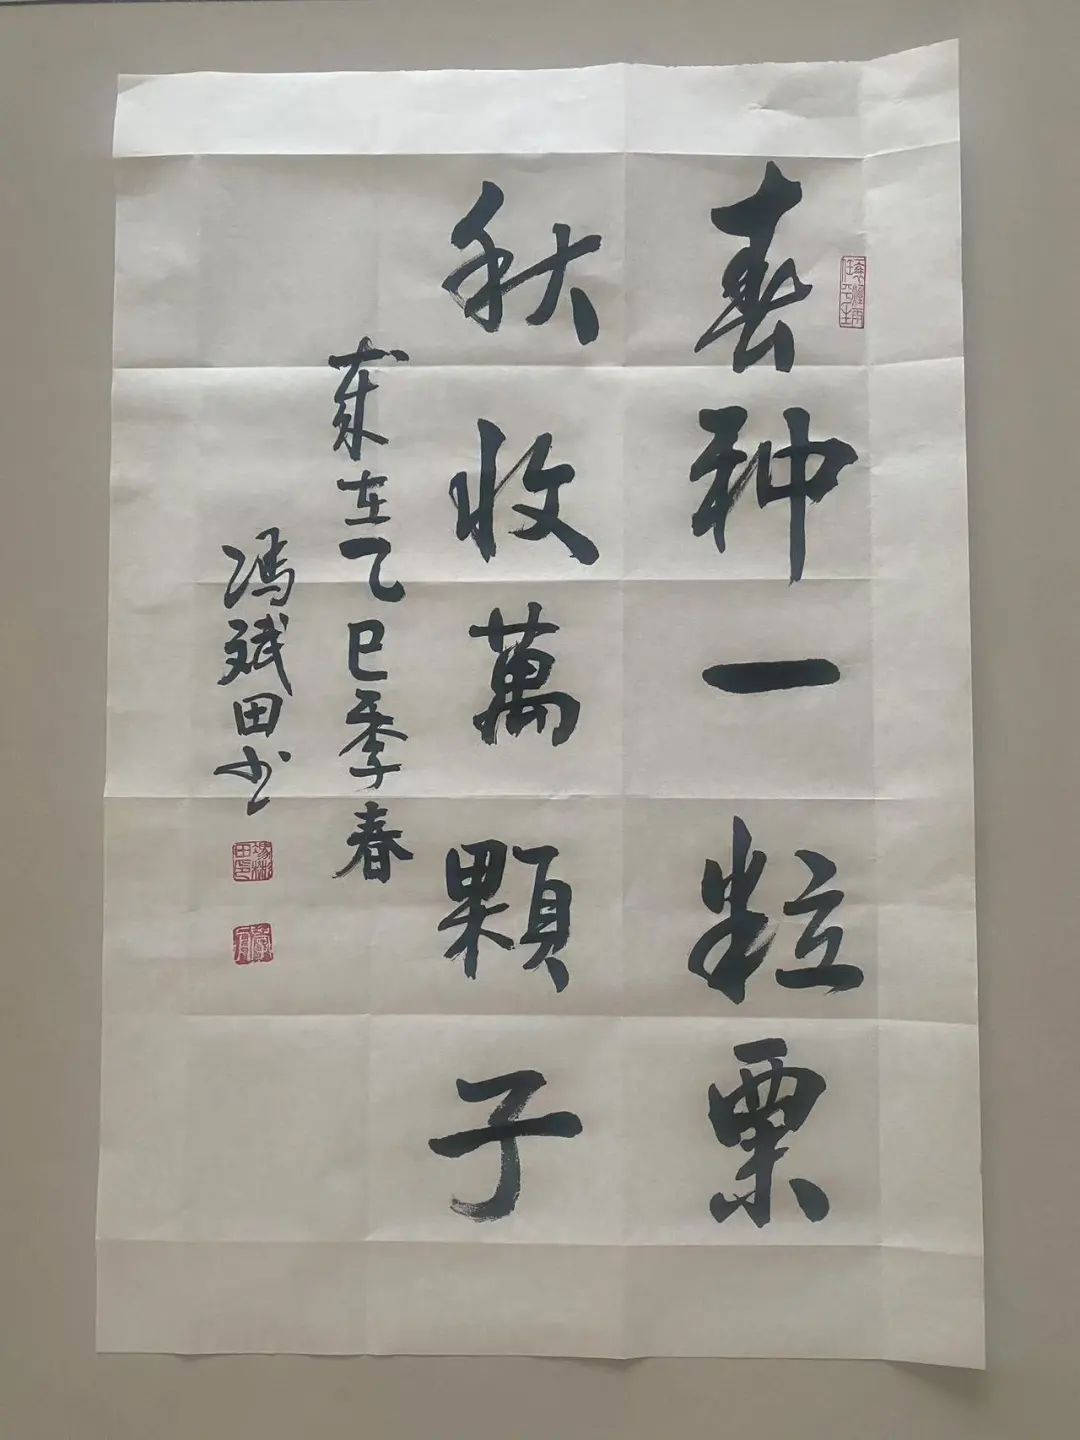 春种一粒粟
秋收萬顆子
歲在乙巳季春
馮斌田书